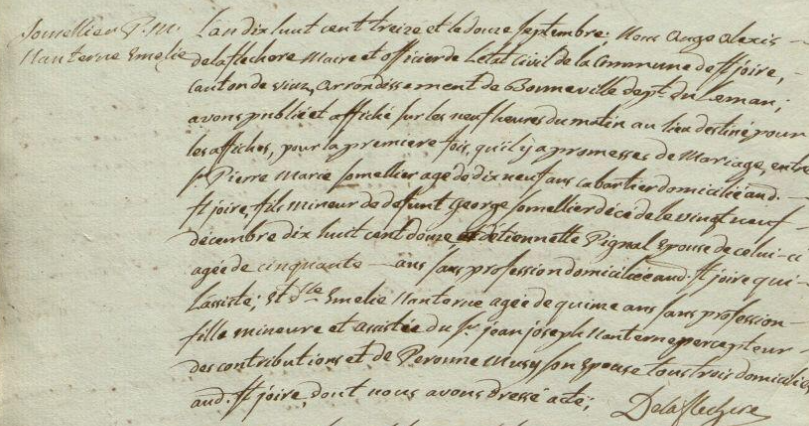 Somellier P. M.
Nanterne Emelie
L'an dix huit cent treize et le douze septembre: Nous Ange Alexis
Delaflechere Maire et officier de L'etat Civil de la Commune de St joire,
Canton de viuz, arrondissement de Bonneville dept. du Leman;
avons publié et affiché sur les neuf heures du matin au lieu destiné pour
les affiches, pour la premiere fois, qu'il y a promesses de Mariage, entre
Sr. Pierre Marie Somellier agé de dix neuf ans cabartier domicilié aud.
St joire, fils mineur de defunt George Somellier décédé le vingt neuf
décembre dix huit cent douze et d'étiennette Pignal Epouse de celui-ci
agée de cinquante ans sans profession domiciliée aud. St joire qui
L'assiste; et Dlle Emelie Nanterne agée de quinze ans sans profession
fille mineure et assistée du Sr. jean joseph Nanterne percepteur
des contributions et de Peronne Musy son Epouse tous trois domiciliés
aud. St joire, dont nous avons dressé acte;
Delaflechere